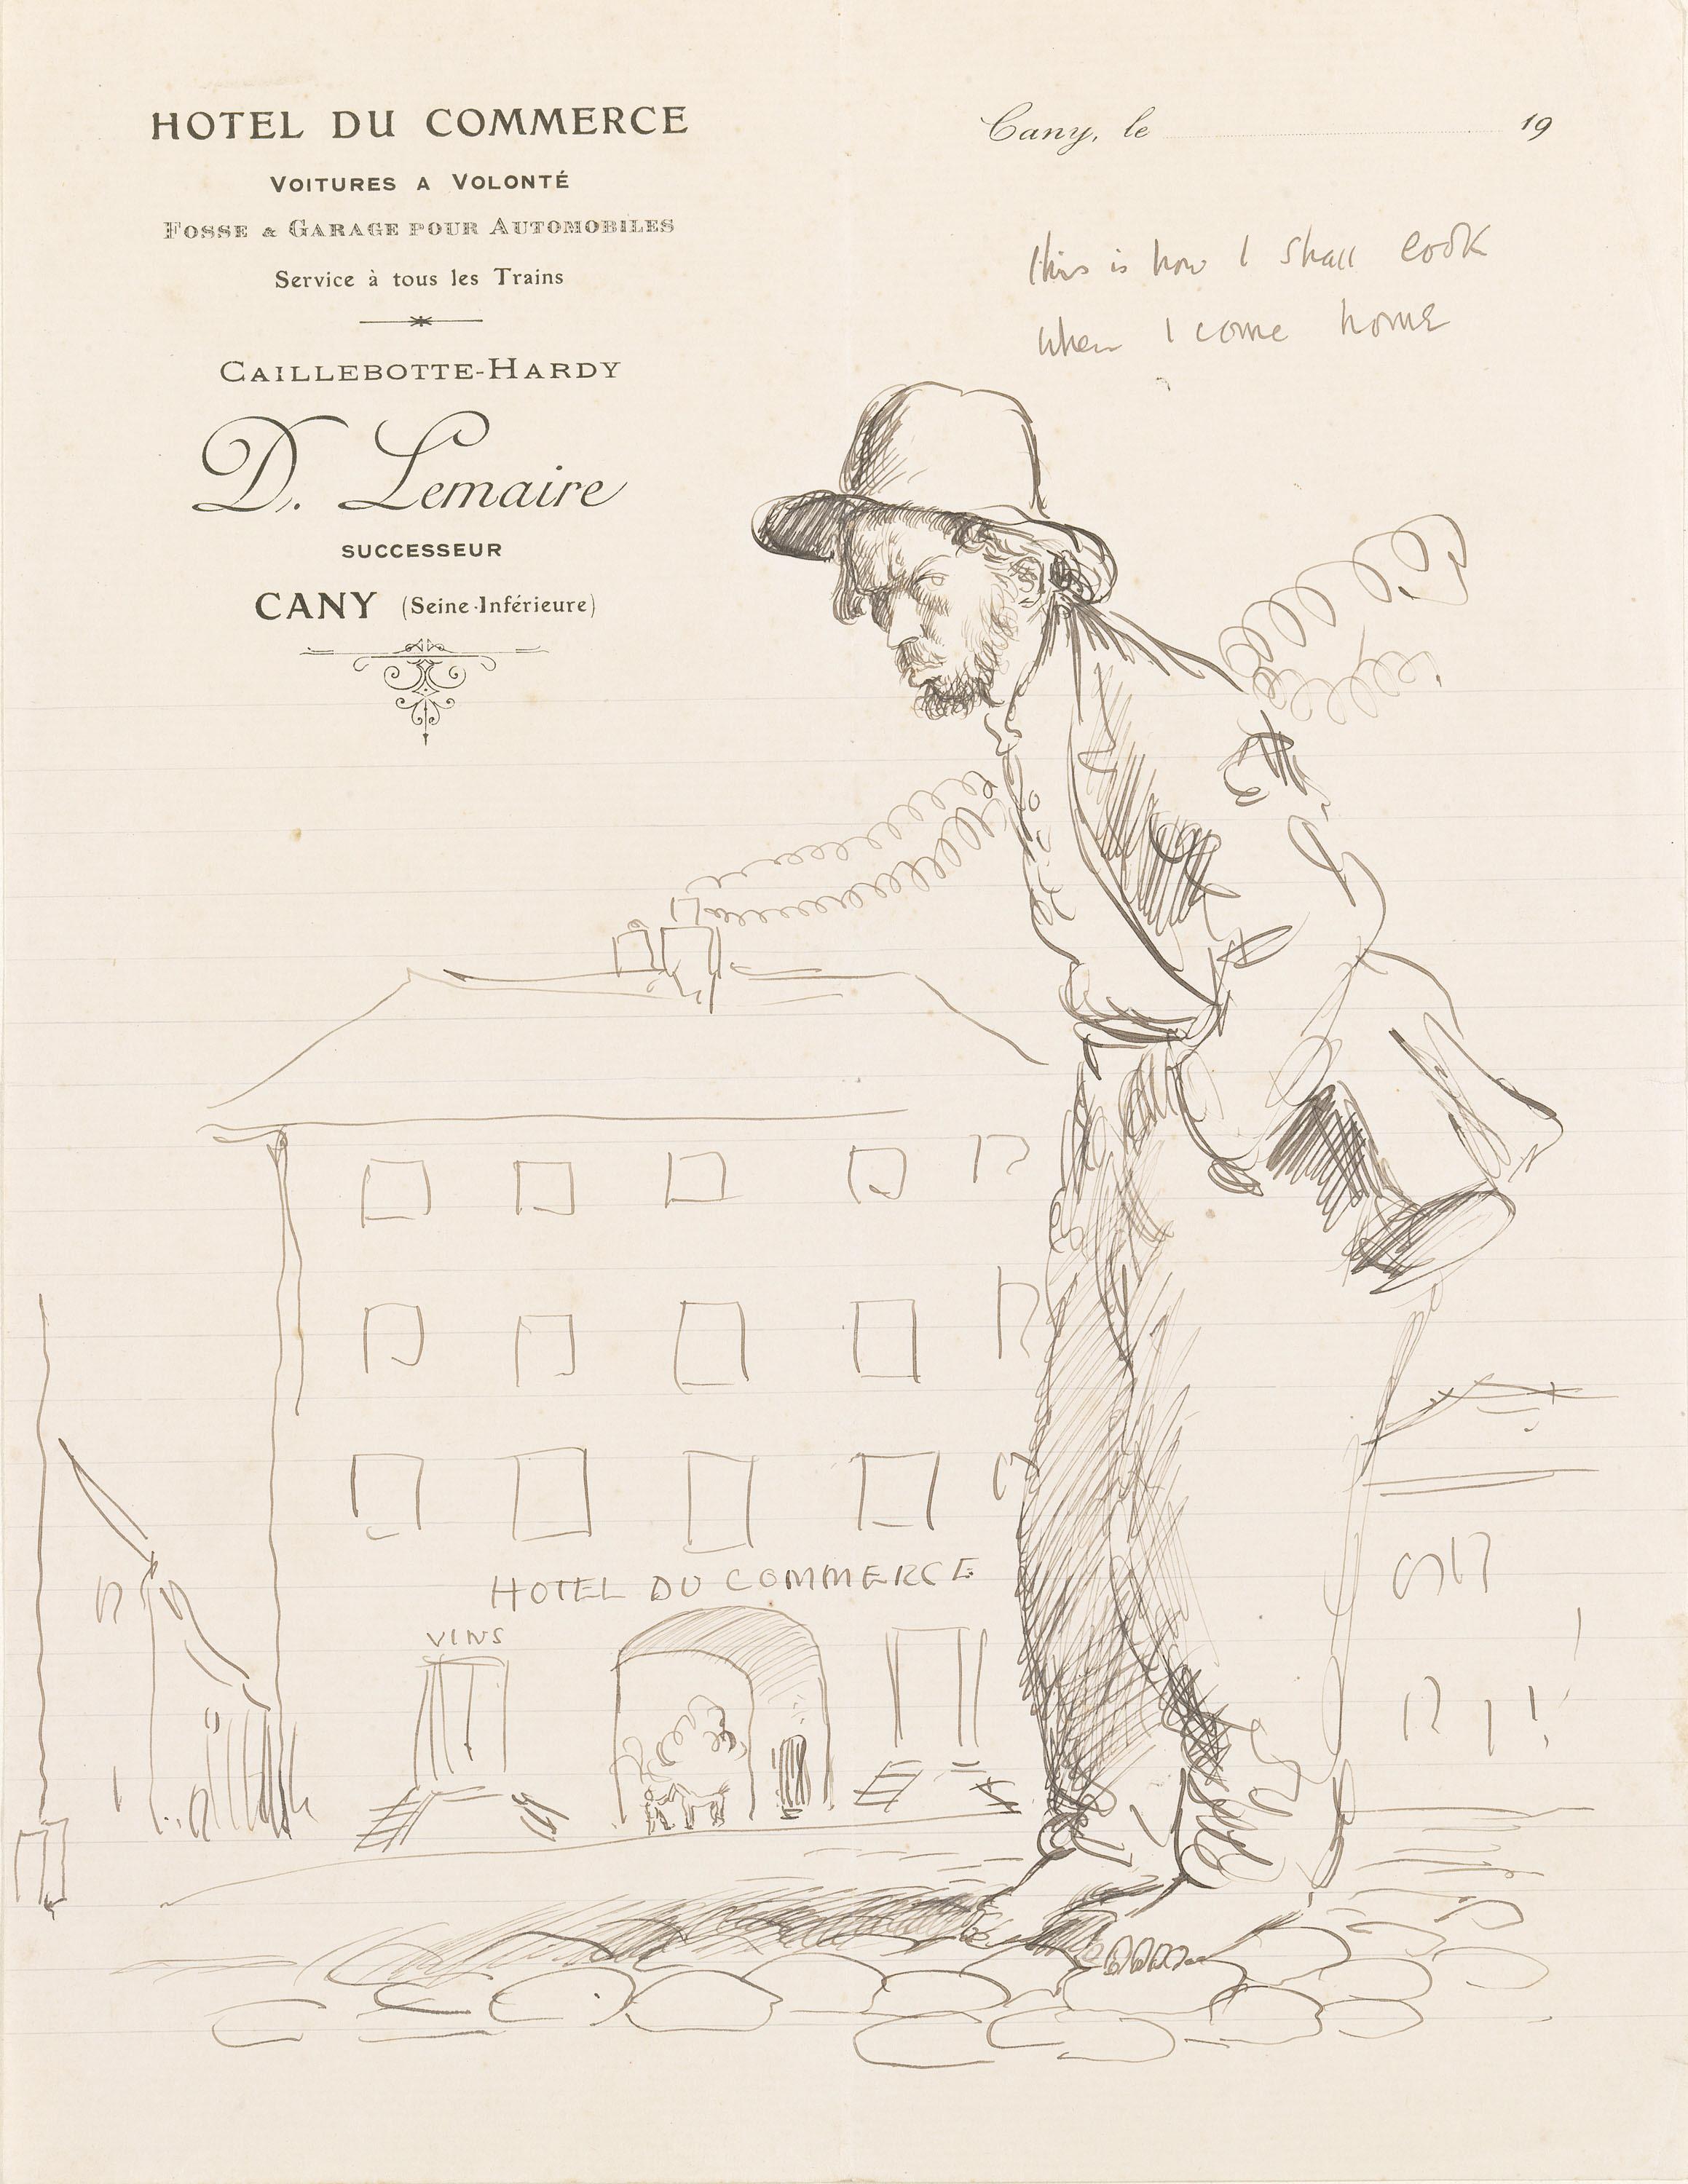 HOTEL DU COMMERCE
VOITURES A VOLONTÉ
FOSSE & GARAGE POUR AUTOMOBILES
Service à tous les Trains
CAILLEBOTTE-HARDY
D. Lemaire
SUCCESSEUR
CANY (Seine-Inférieure)
Cany, le 19
this is how I shall look
when I come home
HOTEL DU COMMERCE
VINS